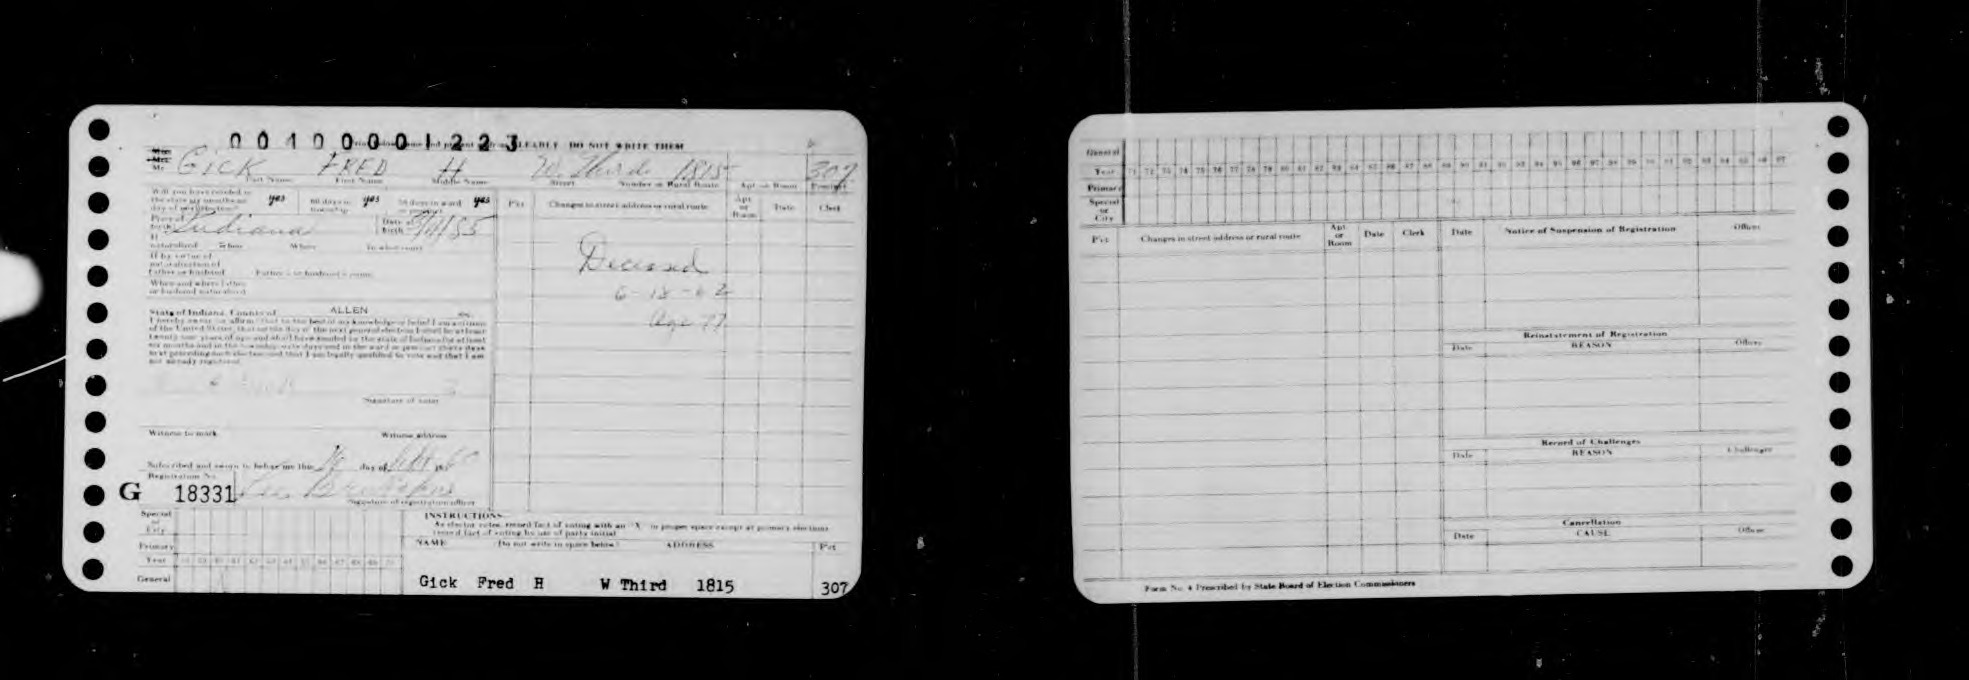 00100001223
CLEARLY DO NOT WRITE THEM
Mr. GICK FRED H W. Third 1815 307
Last Name First Name Middle Name Street Number or Rural Route Apt. or Room Precinct
Will you have resided in the state six months on day of next election? yes 60 days in township yes 30 days in ward or precinct yes
Pct Changes in street address or rural route Apt. or Room Date Clerk
Place of birth Indiana Date of birth
If naturalized When Where In what court
If by virtue of naturalization of
Father or husband Father's or husband's name
When and where father
or husband naturalized
Deceased
6-18-62
Age 77
State of Indiana, County of ALLEN ss.
I hereby swear (or affirm) that to the best of my knowledge or belief I am a citizen
of the United States, that on the day of the next general election I shall be at least
twenty-one years of age and shall have resided in the state of Indiana for at least
six months and in the township sixty days and in the ward or precinct thirty days
next preceding such election and that I am legally qualified to vote and that I am
not already registered.
Signature of voter
Witness to mark Witness address
Subscribed and sworn to before me this day of
Registration No.
G 18331
Signature of registration officer
Special or City
Primary
Year
General
INSTRUCTIONS
As elector votes, record fact of voting with an "X" in proper space except at primary elections
record fact of voting by use of party initial
NAME (Do not write in space below) ADDRESS Pct
Gick Fred H W Third 1815 307
General
Year 71 72 73 74 75 76 77 78 79 80 81 82 83 84 85 86 87 88 89 90 91 92 93 94 95 96 97
Primary
Special or City
Pct Changes in street address or rural route Apt. or Room Date Clerk
Date Notice of Suspension of Registration Officer
Reinstatement of Registration
Date REASON Officer
Record of Challenges
Date REASON Challenger
Cancellation
Date CAUSE Officer
Form No. 4 Prescribed by State Board of Election Commissioners